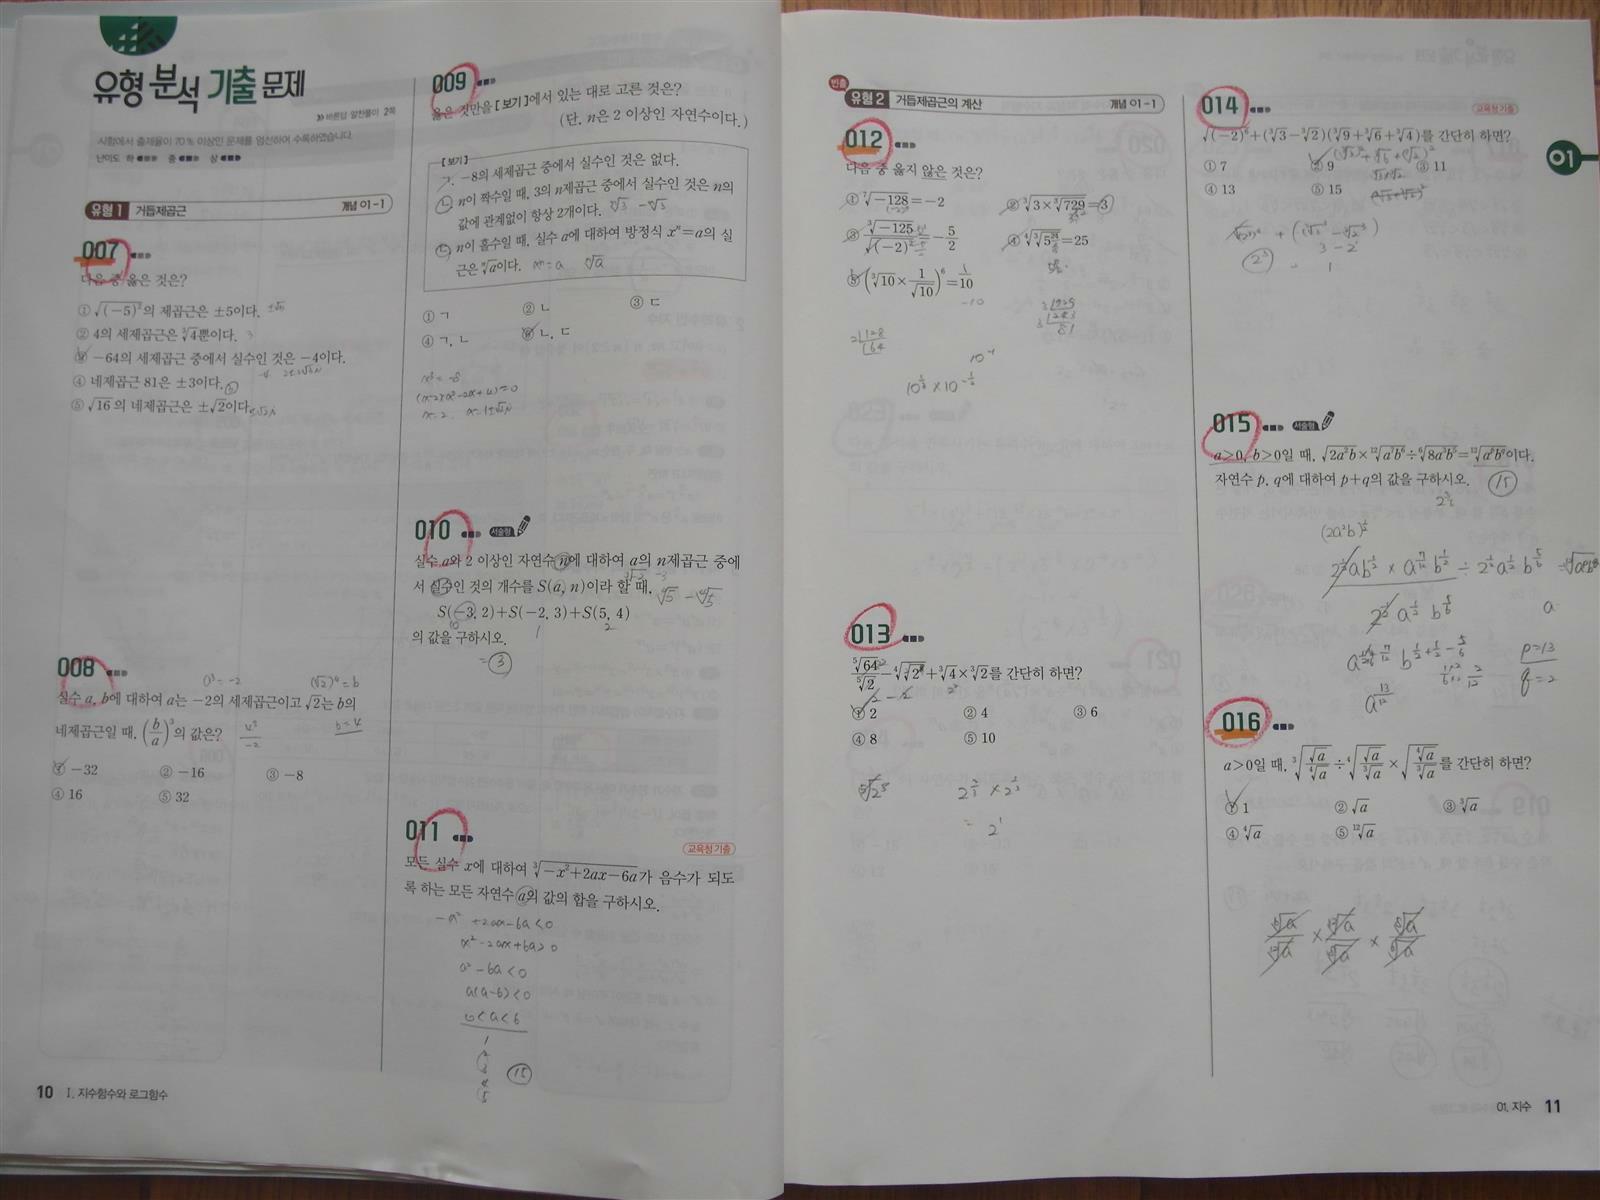 유형 분석 기출 문제
바른답 · 알찬풀이 2쪽
시험에서 출제율이 70 % 이상인 문제를 엄선하여 수록하였습니다.
난이도 하 중 상
유형 1 거듭제곱근 개념 01-1
007
다음 중 옳은 것은?
① √(-5)²의 제곱근은 ±5이다. ±√5
② 4의 세제곱근은 ³√4뿐이다.
③ -64의 세제곱근 중에서 실수인 것은 -4이다.
④ 네제곱근 81은 ±3이다.
⑤ √16의 네제곱근은 ±√2이다.
008
a³=-2 (√2)⁴=b
실수 a, b에 대하여 a는 -2의 세제곱근이고 √2는 b의
네제곱근일 때, (b/a)³의 값은?
4³/-2
b=4
① -32 ② -16 ③ -8
④ 16 ⑤ 32
009
옳은 것만을 [보기]에서 있는 대로 고른 것은?
(단, n은 2 이상인 자연수이다.)
[보기]
ㄱ. -8의 세제곱근 중에서 실수인 것은 없다.
ㄴ. n이 짝수일 때, 3의 n제곱근 중에서 실수인 것은 n의
값에 관계없이 항상 2개이다. ⁿ√3 -ⁿ√3
ㄷ. n이 홀수일 때, 실수 a에 대하여 방정식 xⁿ=a의 실
근은 ⁿ√a이다. xⁿ=a ⁿ√a
① ㄱ ② ㄴ ③ ㄷ
④ ㄱ, ㄴ ⑤ ㄴ, ㄷ
x³=-8
010 서술형
실수 a와 2 이상인 자연수 n에 대하여 a의 n제곱근 중에
서 실수인 것의 개수를 S(a, n)이라 할 때, ⁴√5 -⁴√5
S(-3, 2)+S(-2, 3)+S(5, 4)
0 1 2
의 값을 구하시오.
=3
011
교육청 기출
모든 실수 x에 대하여 ³√-x²+2ax-6a가 음수가 되도
록 하는 모든 자연수 a의 값의 합을 구하시오.
-x²+2ax-6a<0
x²-2ax+6a>0
a²-6a<0
a(a-6)<0
0<a<6
1
2
3
4
5
15
10 Ⅰ. 지수함수와 로그함수
빈출
유형 2 거듭제곱근의 계산 개념 01-1
012
다음 중 옳지 않은 것은?
① ⁷√-128=-2 ② ³√3×³√729=3
③ ³√-125/√(-2)²=-5/2 ④ ⁴√³√5²⁴=25
⑤ (³√10×1/√10)⁶=1/10
2|128
64
3|729
3|243
81
10⁻¹
013
⁵√64/⁵√2-⁴√√2⁸+³√4×³√2를 간단히 하면?
2-2
① 2 ② 4 ③ 6
④ 8 ⑤ 10
2^(2/3)×2^(1/3)
=2¹
014
교육청 기출
√(-2)⁶+(³√3-³√2)(³√9+³√6+³√4)를 간단히 하면?
① 7 ② 9 ③ 11
④ 13 ⑤ 15
3-2
2³
1
01
015 서술형
a>0, b>0일 때, √2a²b×¹²√a⁷b⁶÷⁶√8a³b⁵=¹²√aᵖb^q이다.
자연수 p, q에 대하여 p+q의 값을 구하시오. 15
(2a²b)^(1/2)
2^(1/2)ab^(1/2)×a^(7/12)b^(1/2)÷2^(1/2)a^(1/2)b^(5/6)
2^(1/2)a^(1/2)b^(5/6)
p=13
q=2
a^(13/12)
016
a>0일 때, ³√(√a/⁴√a)÷⁴√(√a/³√a)×√(⁴√a/³√a)를 간단히 하면?
① 1 ② √a ③ ³√a
④ ⁴√a ⑤ ¹²√a
01. 지수 11